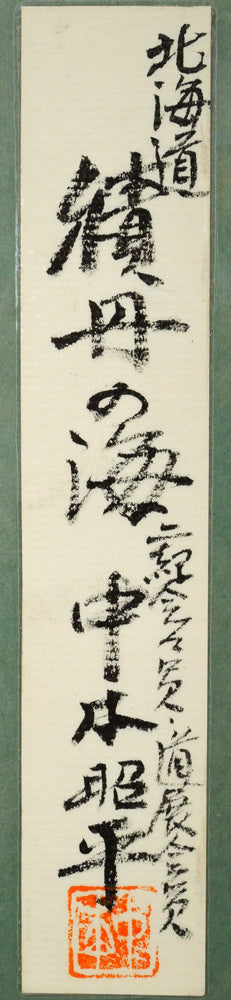 北海道
積丹の海
二紀会会員・道展会員
中本昭平
中本